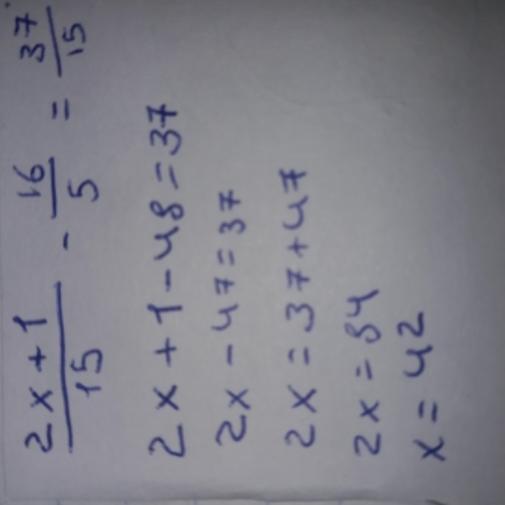 2x+1/15 - 16/5 = 37/15
2x+1-48=37
2x-47=37
2x=37+47
2x=84
x=42